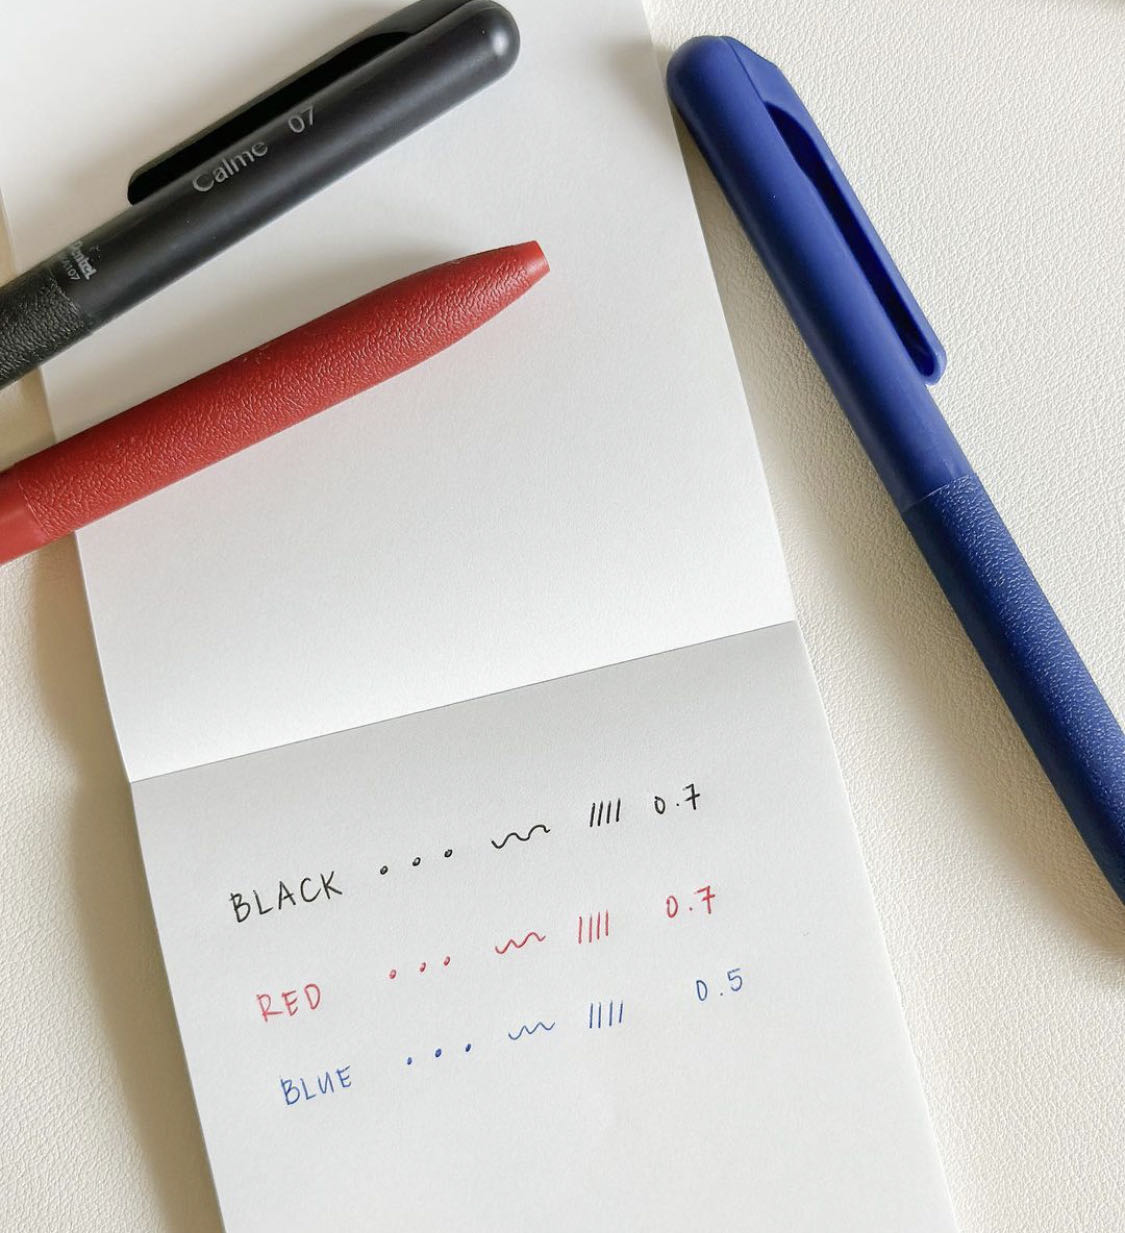 Calme 07
Pentel
BLACK 0.7
RED 0.7
BLUE 0.5